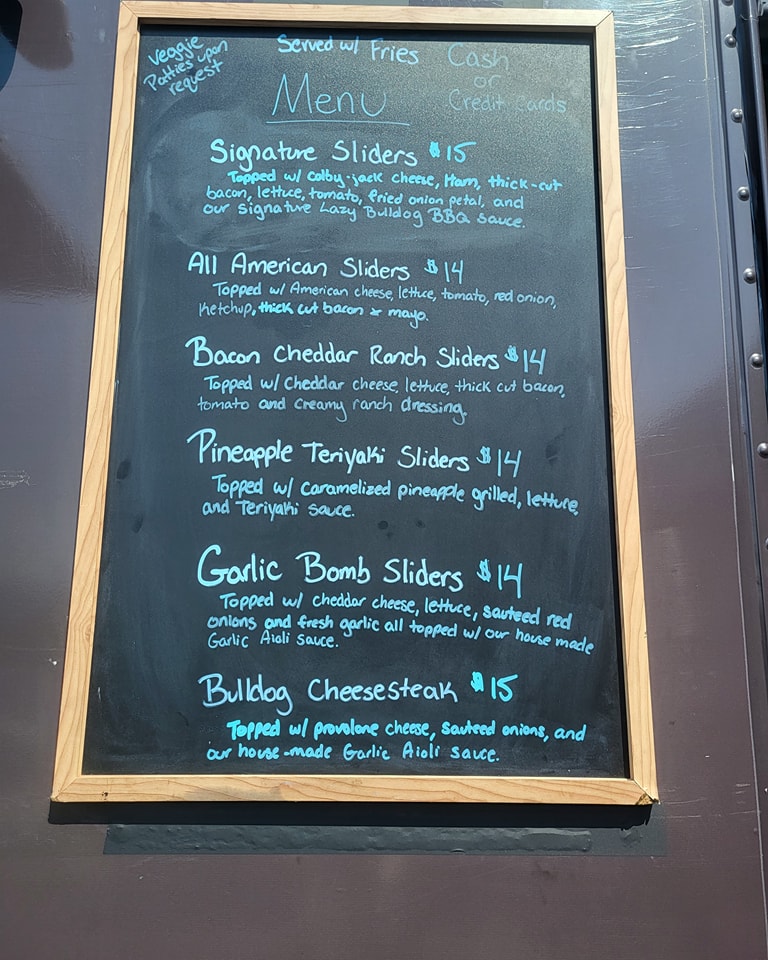 Veggie
Patties upon
request
Served w/ Fries
Cash
or
Credit Cards
Menu
Signature Sliders $15
Topped w/ colby-jack cheese, Ham, thick-cut
bacon, lettuce, tomato, fried onion petal, and
our signature Lazy Bulldog BBQ sauce.
All American Sliders $14
Topped w/ American cheese, lettuce, tomato, red onion,
Ketchup, thick cut bacon & mayo.
Bacon Cheddar Ranch Sliders $14
Topped w/ Cheddar cheese, lettuce, thick cut bacon,
tomato and creamy ranch dressing.
Pineapple Teriyaki Sliders $14
Topped w/ caramelized pineapple grilled, lettuce,
and Teriyaki sauce.
Garlic Bomb Sliders $14
Topped w/ cheddar cheese, lettuce, sauteed red
onions and fresh garlic all topped w/ our house made
Garlic Aioli sauce.
Bulldog Cheesesteak $15
Topped w/ provolone cheese, sauteed onions, and
our house-made Garlic Aioli sauce.